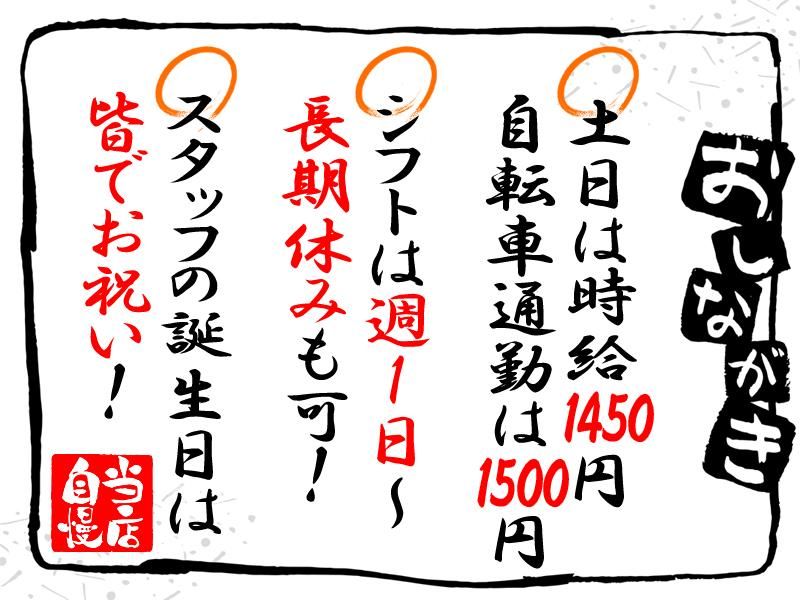 おしながき
土日は時給1450円
自転車通勤は1500円
シフトは週1日～
長期休みも可！
スタッフの誕生日は
皆でお祝い！
当店
自慢